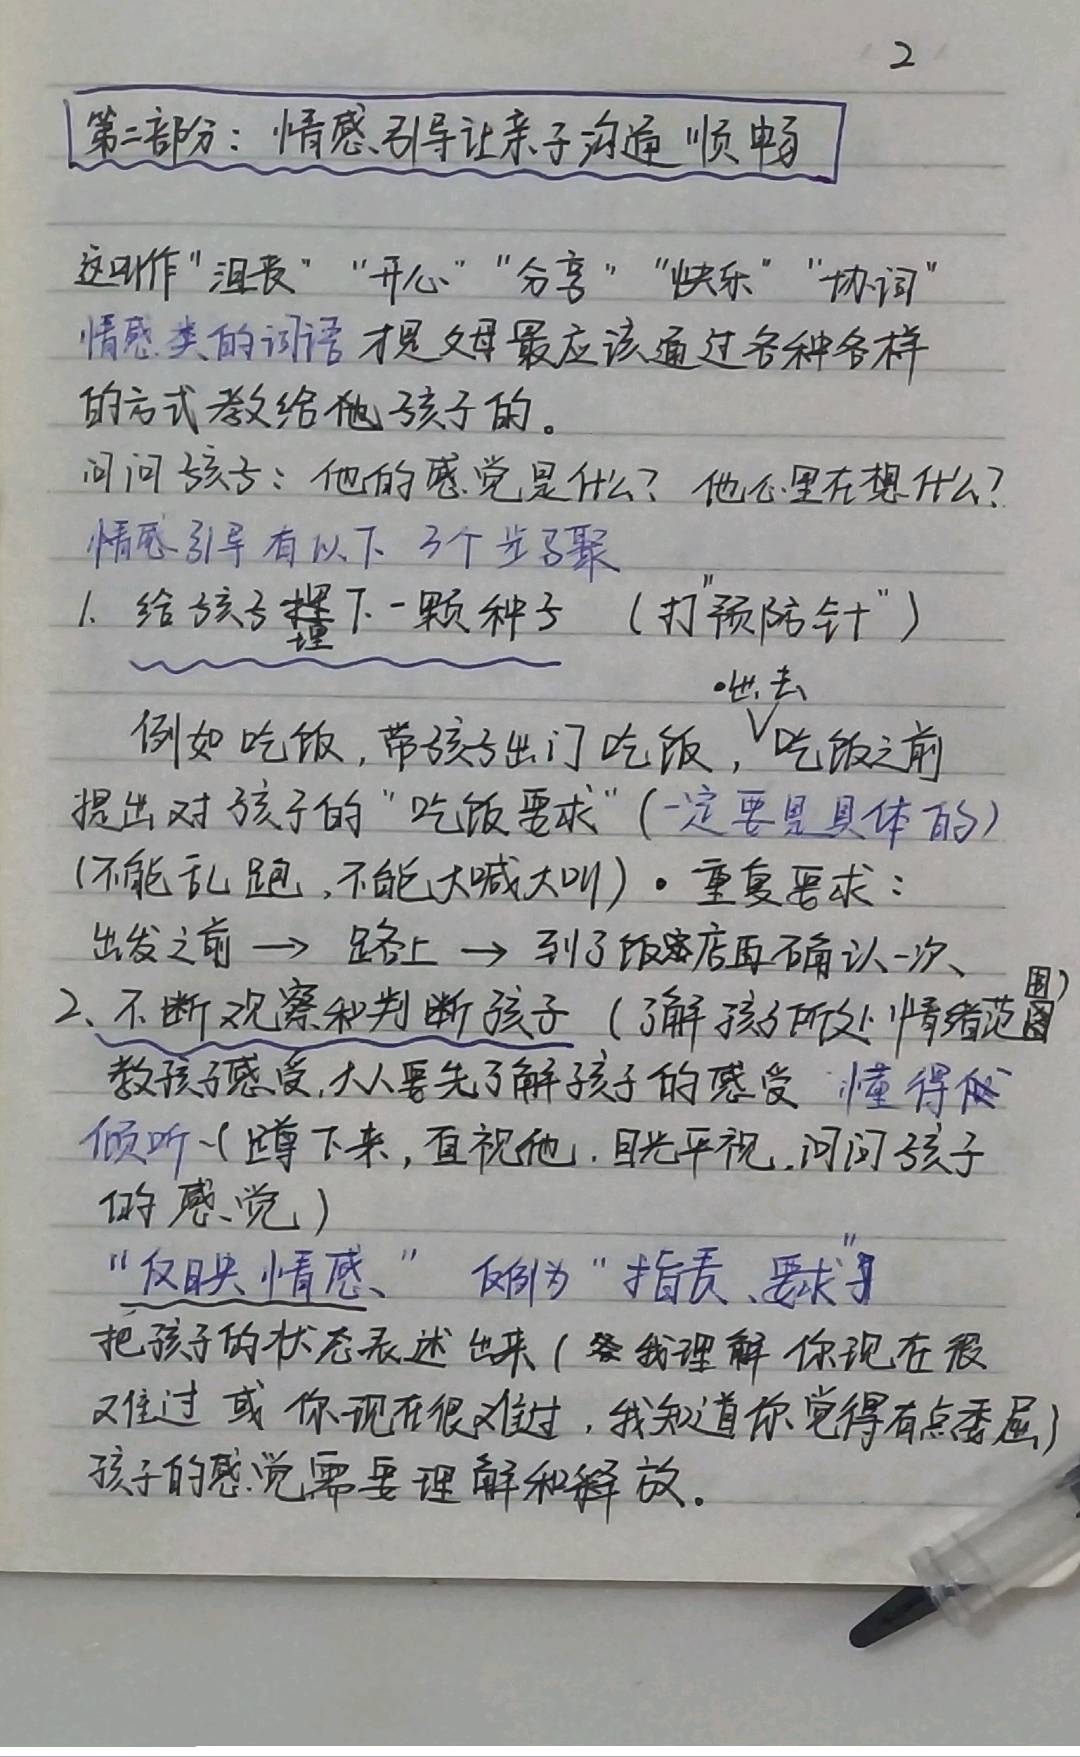 2
第二部分：情感引导让亲子沟通顺畅
这叫作"沮丧" "开心" "分享" "快乐" "协词"
情感类的词语才是父母最应该通过各种各样
的方式教给他孩子的。
问问孩子：他的感觉是什么？他心里在想什么？
情感引导有以下3个步骤
1. 给孩子埋下一颗种子 （打"预防针"）
出去
例如吃饭，带孩子出门吃饭，吃饭之前
提出对孩子的"吃饭要求"（一定要是具体的）
（不能乱跑，不能大喊大叫）·重复要求：
出发之前 → 路上 → 到了饭店再确认一次、
2、不断观察和判断孩子（了解孩子所处情绪范围）
教孩子感受，大人要先了解孩子的感受 懂得
倾听~（蹲下来，直视他．目光平视．问问孩子
的感觉）
"反映情感、" 反例为"指责、要求"
把孩子的状态表述出来（我理解你现在很
难过 或 你现在很难过，我知道你觉得有点委屈）
孩子的感觉需要理解和释放。